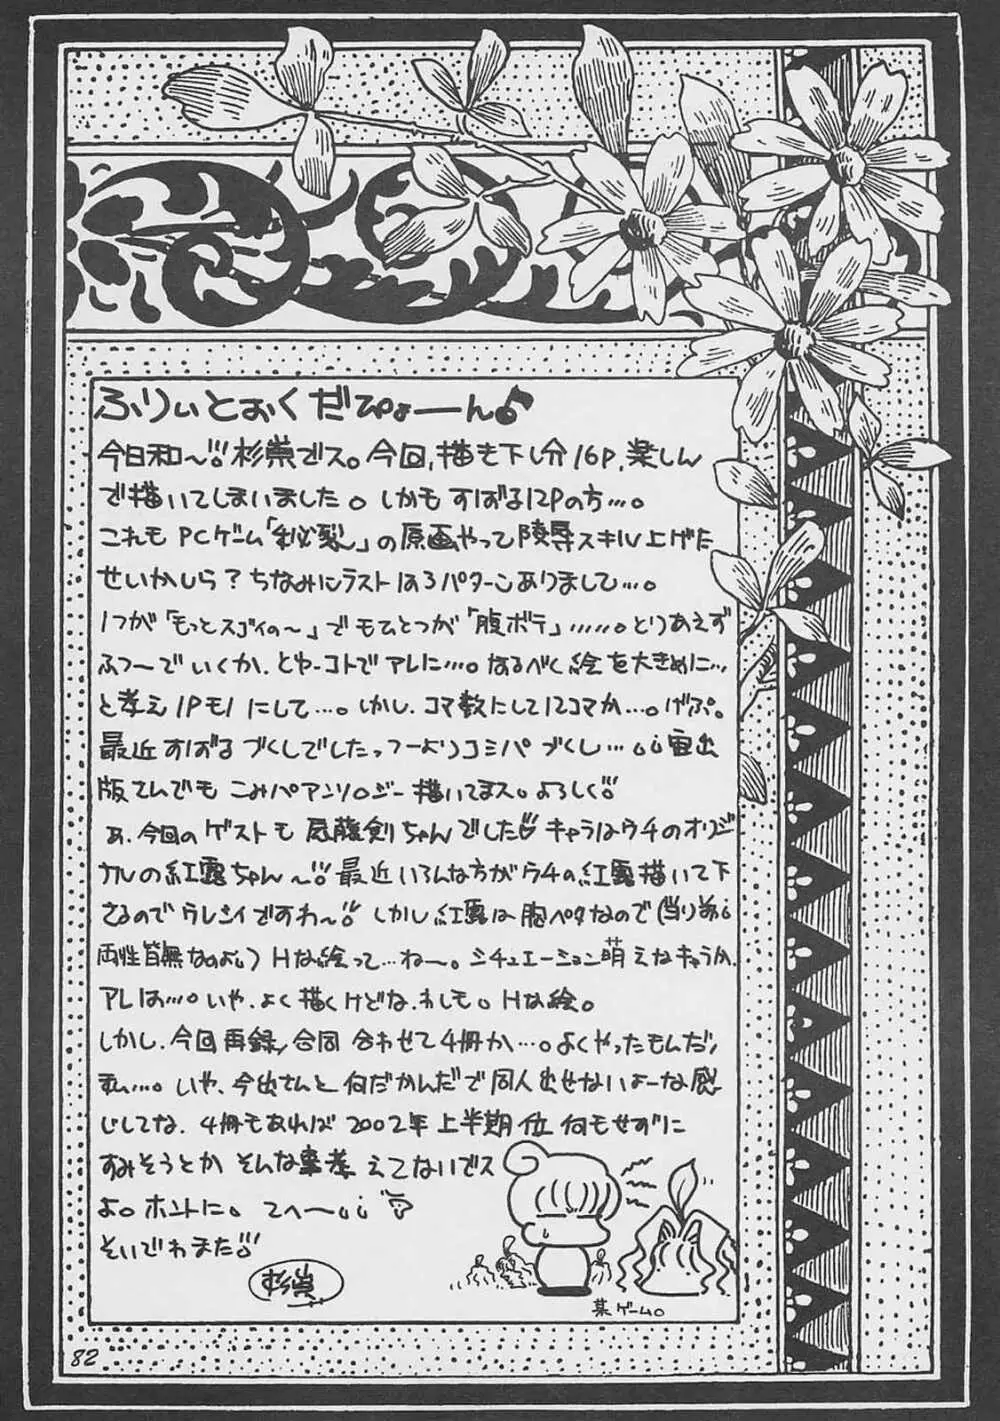 ふりぃとおくだぴょーん♪
今日和〜!! 杉崇でス。今回、描き下し分16P、楽しん
で描いてしまいました。しかもすばる12Pの方…。
これもPCゲーム「秘裂」の原画やって陵辱スキル上げた
せいかしら？ちなみにラストは3パターンありまして…。
1つが「もっとスゴイの〜」でもひとつが「腹ボテ」……。とりあえず
ふつーでいくか、とゆーコトでアレに…。なるべく絵を大きめに…
と考え1Pモノにして…。しかし、コマ数にして12コマか…。げぷ。
最近すばるづくしでしたっつーよりコミパづくし…
版さんでもこみパアンソロジー描いてまス。よろしく!!
あ、今回のゲストも 藤剣ちゃんでした キャラはウチのオリジ
ナルの紅露ちゃん〜!! 最近いろんな方がウチの紅露描いて下
さるのでウレシイですわ〜!! しかし紅露は胸ペタなので(当り前
両性皆無なのよ)Hな絵って…ね〜。シチュエーション萌えなキャラか、
アレは…。いや、よく描くけどな、わしも。Hな絵。
しかし、今回再録/合同合わせて4冊か…。よくやったもんだ/
私…。いや、今出さんと何だかんだで同人出せないよーな感
じしてな、4冊もあれば2002年上半期位何もせずに
すみそうとかそんな事考えてないでス
よ。ホントに。てへ〜
そいでわまた!!
杉崇
某ゲーム。
82